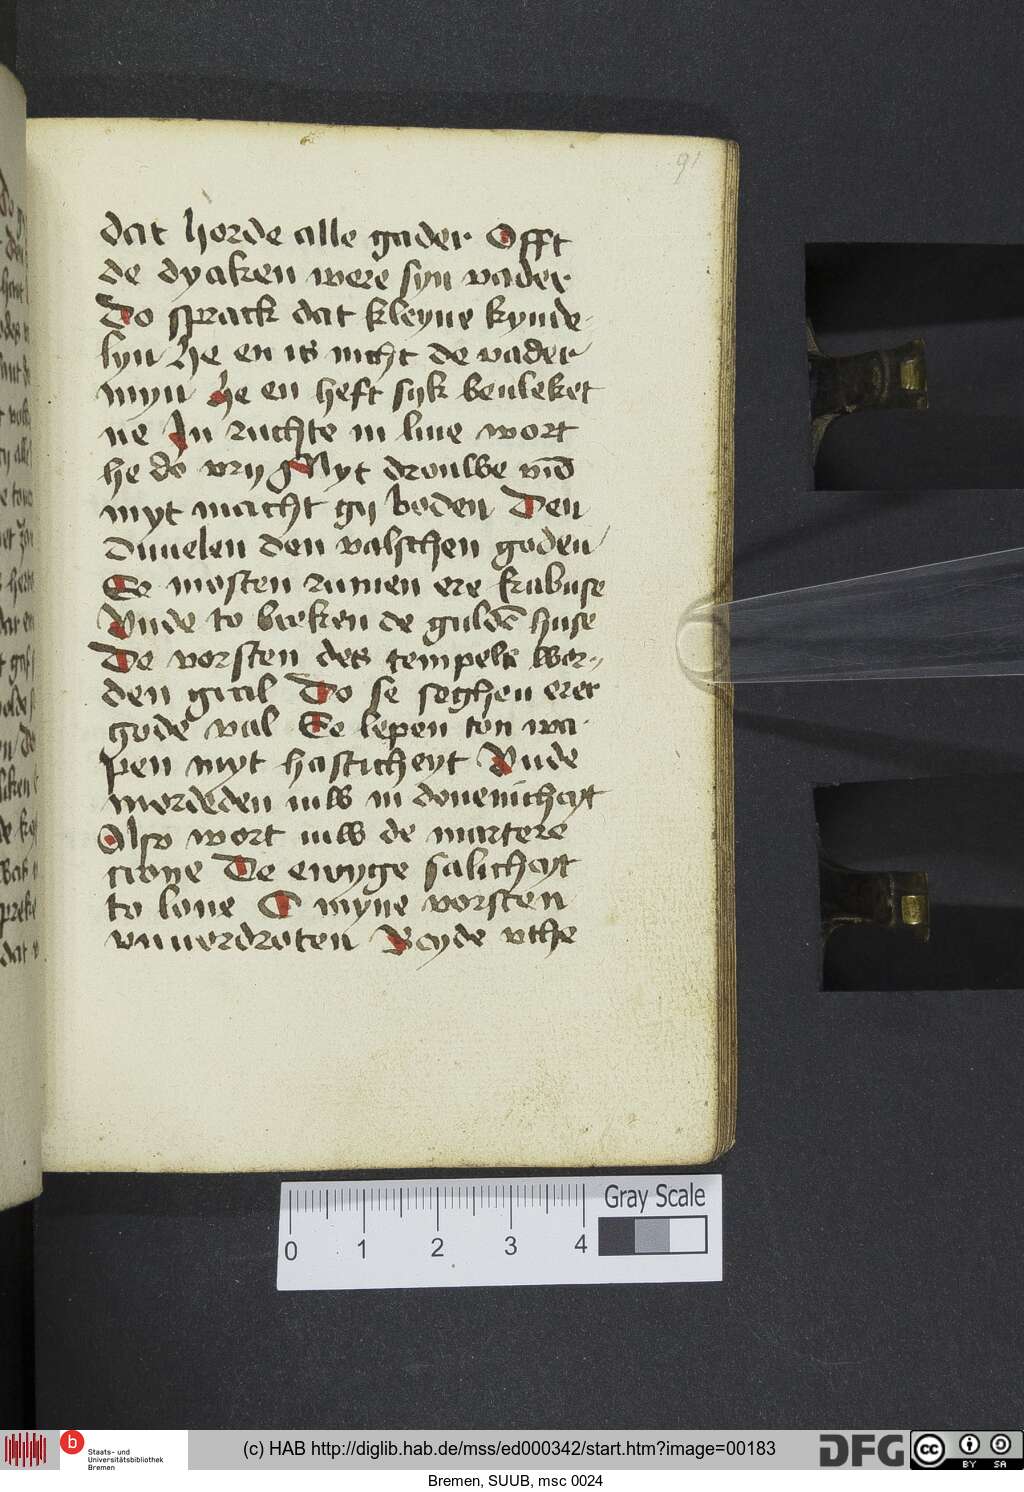 91
dat horde alle gader Offt
de dyaken were syn vader
Do sprack dat kleyne kynde-
lyn He en is nicht de vader
myn he en heft syk beuleket
ne In ruchte in liue wort
he do vry g Myt drouwe vn̄
myt macht gy boden Den
duuelen den valschen goden
Se mosten rumen ere krabuse
Vnde to breken de guldē huse
De vorsten des tempels wor-
den gral Do se seghen erer
gode val Se lepen ton wa-
pen myt hasticheyt Vnde
mordeden iuw in douenicheyt
Also wort iuw de martere
crone De ewyge salicheyt
to lone O myne vorsten
vnuordroten Beyde vthe
0 1 2 3 4
Gray Scale
b
Staats- und
Universitätsbibliothek
Bremen
(c) HAB http://diglib.hab.de/mss/ed000342/start.htm?image=00183
DFG
cc
BY SA
Bremen, SUUB, msc 0024